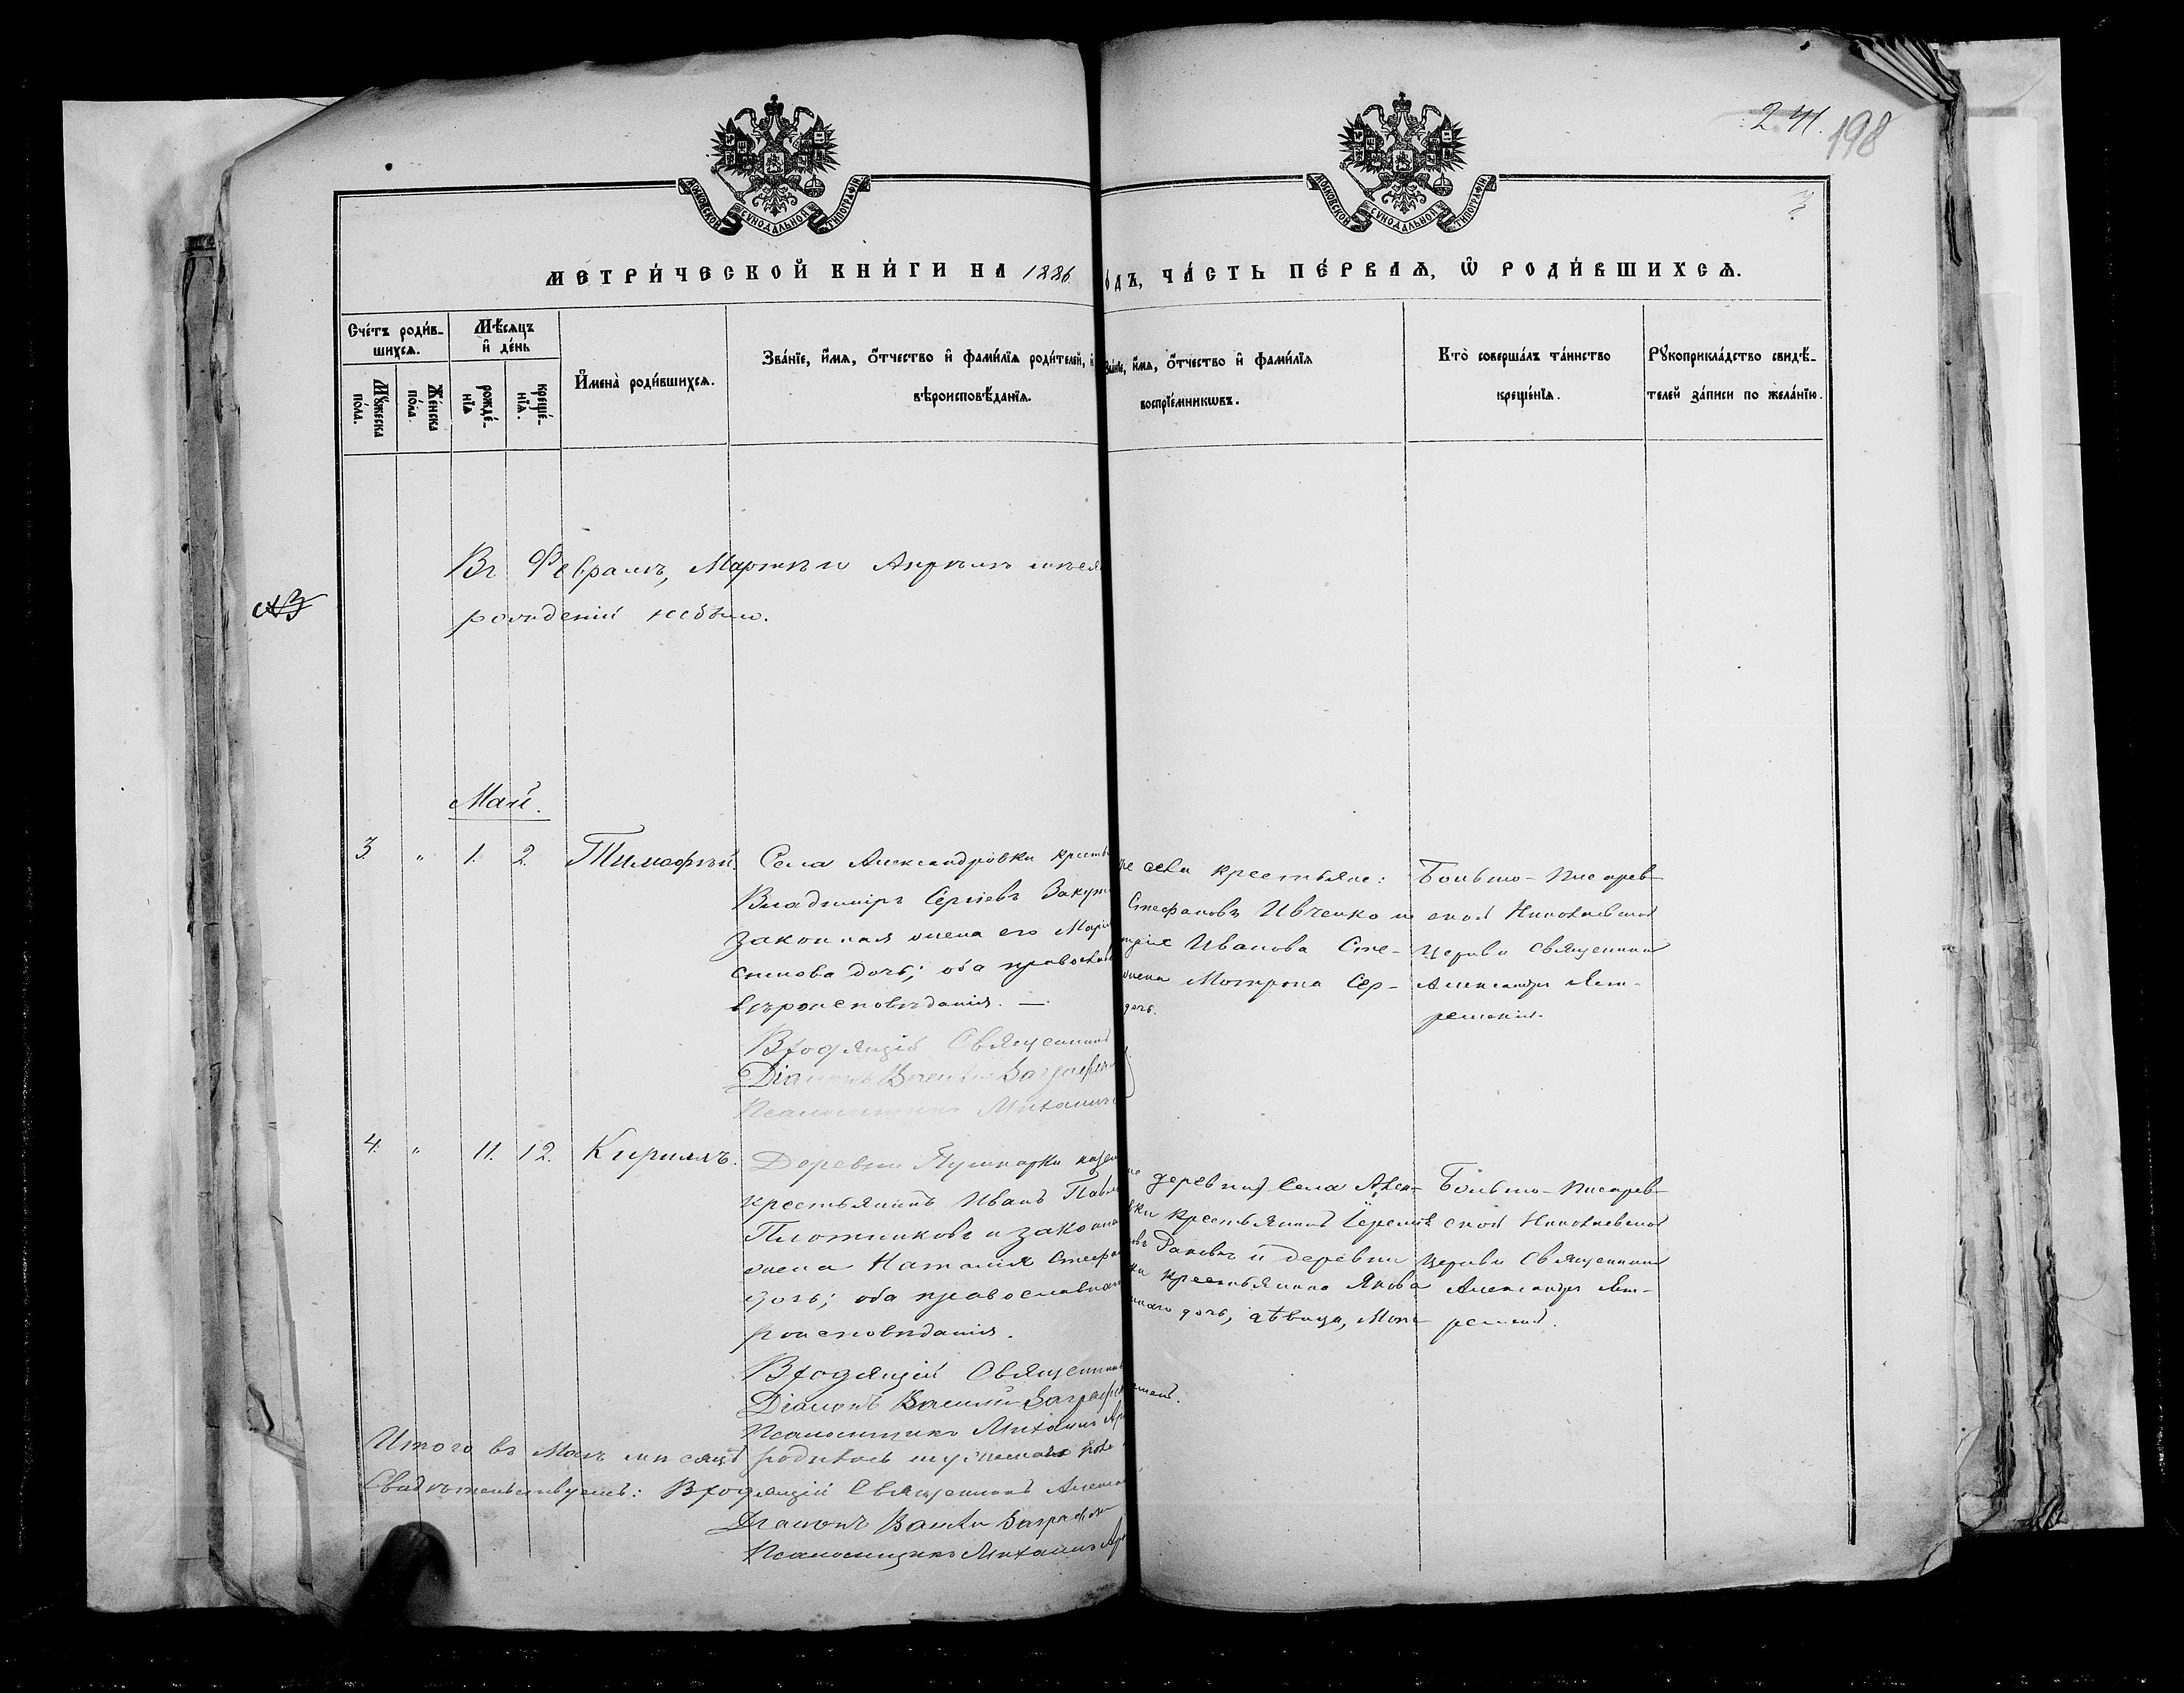 241.
198
МОСКОВСКОЙ СѴНОДАЛЬНОЙ ТИПОГРАФІИ
МОСКОВСКОЙ СѴНОДАЛЬНОЙ ТИПОГРАФІИ
3
МЕТРИ́ЧЕСКОЙ КНИ́ГИ НА 1886
ОДЪ, ЧА́СТЬ ПЕ́РВАѦ, Ѿ РОДИ́ВШИХСѦ.
Сче́тъ роди́в-
шихсѧ.
Мѣ́сѧцъ
и де́нь
Мꙋ́жеска по́ла.
Же́нска по́ла
рожде́-нїѧ
креще́-нїѧ.
И҆мена̀ роди́вшихсѧ.
Зва́нїе, и҆́мѧ, ѻ҆́тчество и҆ фами́лїѧ роди́телей, и
вѣроисповѣ́данїѧ.
Зва́нїе, и҆́мѧ, ѻ҆́тчество и҆ фами́лїѧ
воспрїе́мникѡвъ.
Кто̀ соверша́лъ та́инство
креще́нїѧ.
Рꙋкоприкла́дство свидѣ́-
телей за́писи по жела́нїю.
Въ Февралѣ, Мартѣ и Апрѣлѣ мѣся
рожденій небыло.
Май.
3. " 1. 2. Тимофѣй.
Села Александровки кресть
Владиміръ Сергіевъ
законная жена его Марі
дочь; оба православ
вѣроисповѣданія. —
Входящій Священникъ
Діаконъ Василій
Псаломщикъ Михаилъ
села крестьяне:
Стефановъ Ивченко и
Иванова Сте-
жена Мотрона Сер-
дочь.
Больше-Писарев-
ской Николаевской
Церкви Священникъ
Александръ
4. " 11. 12. Кириллъ.
Деревни Пушкарки
крестьянинъ Иванъ Павл
Плотниковъ и законна
жена Наталія Стефа
дочь; оба православна
роисповѣданія.
Входящій Священникъ
Діаконъ Василій
Псаломщикъ Михаилъ
деревни, Села Алек-
крестьянинъ
и деревни
крестьянина Якова
дочь, дѣвица,
Больше-Писарев-
ской Николаевской
Церкви Священникъ
Александръ
Итого въ Маѣ мѣсяцѣ родилось мужескаго пола
Свидѣтельствуемъ: Входящій Священникъ Алекса
Діаконъ Василій
Псаломщикъ Михаилъ